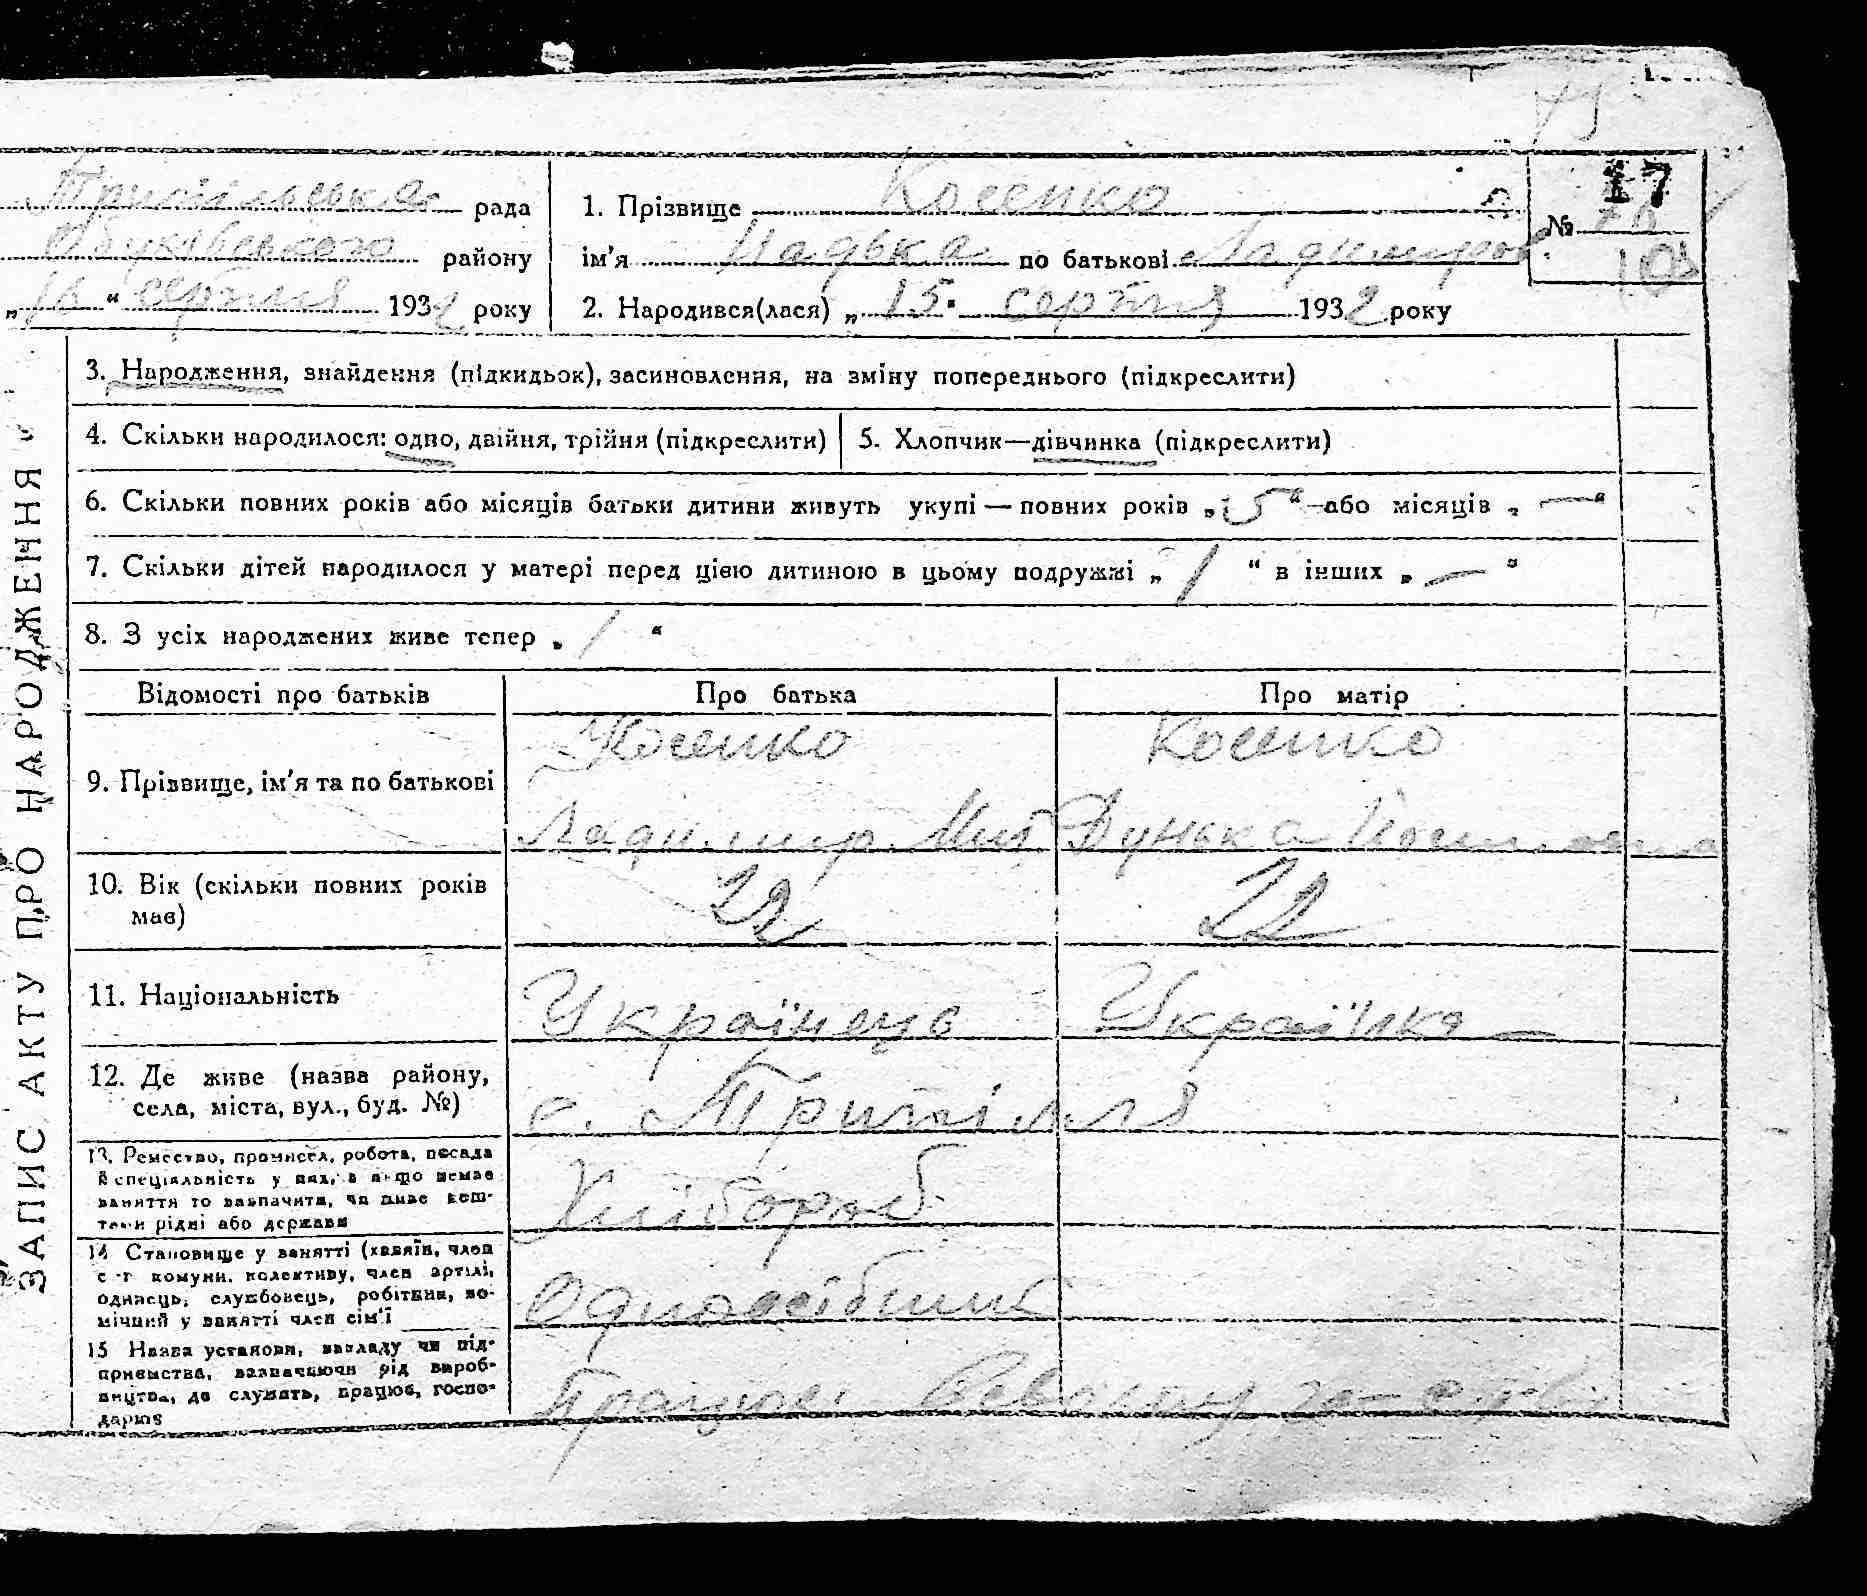 75
17
Трипільська рада
Обухівського району
„16“ серпня 1932 року
1. Прізвище Косенко
№
ім'я Надька по батькові Ладимиров.
2. Народився(лася) „15“ серпня 1932 року
ЗАПИС АКТУ ПРО НАРОДЖЕННЯ
3. Народження, знайдення (підкидьок), засиновлення, на зміну попереднього (підкреслити)
4. Скільки народилося: одно, двійня, трійня (підкреслити)
5. Хлопчик—дівчинка (підкреслити)
6. Скільки повних років або місяців батьки дитини живуть укупі — повних років „5“ —або місяців „—“
7. Скільки дітей народилося у матері перед цією дитиною в цьому подружжі „1“ в інших „—“
8. З усіх народжених живе тепер „1“
Відомості про батьків
Про батька
Про матір
9. Прізвище, ім'я та по батькові
Косенко
Ладимир Мит
Косенко
Дунька
10. Вік (скільки повних років
має)
22
22
11. Національність
Українець
Українка —
12. Де живе (назва району,
села, міста, вул., буд. №)
с. Трипілля
13. Ремество, промисел, робота, посада
й спеціяльність у них, а якщо немає
заняття то зазначити, чи живе кош-
тами рідні або держави
Хлібороб
14 Становище у занятті (хазяїн, член
с-г комуни, колективу, член артілі,
одинець, службовець, робітник, по-
мічний у занятті член сім'ї
Одноосібник
15 Назва установи, закладу чи під-
приємства, зазначаючи рід вироб-
ництва, де служить, працює, госпо-
дарює
Працює в своєму